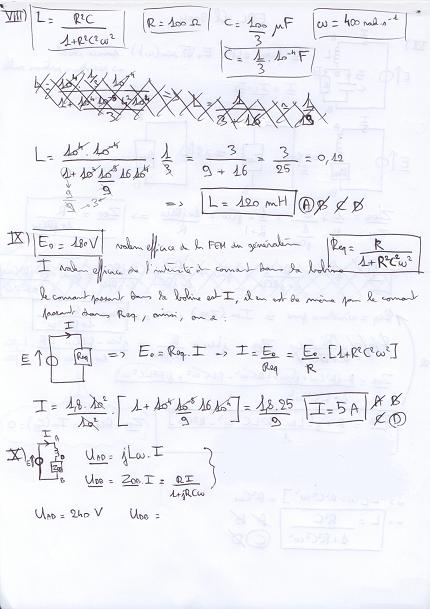 VIII) L = R²C / 1+R²C²ω² R = 100 Ω C = 100/3 μF ω = 400 rad.s⁻¹
C = 1/3 . 10⁻⁴ F
L = 10⁴ . 10⁻⁴ / 1 + 10⁴ 10⁻⁸/9 16 10⁴ . 1/3 = 3 / 9 + 16 = 3/25 = 0,12
=> L = 120 mH A B C D
IX) E₀ = 180V valeur efficace de la FEM du générateur Req = R / 1+R²C²ω²
I valeur efficace de l'intensité du courant dans la bobine
le courant passant dans la bobine est I, il en est de même pour le courant
passant dans Req, ainsi, on a :
I
E Req => E₀ = Req . I → I = E₀/Req = E₀/R . [1+R²C²ω²]
I = 1,8 . 10² / 10² . [ 1 + 10⁴ 10⁻⁸/9 16 10⁴ ] = 1,8 . 25 / 9 I = 5 A A B C D
X) E I A D B U_AD = jLω . I
U_DB = Z_DB . I = RI / 1+jRCω
U_AD = 240 V U_DB =